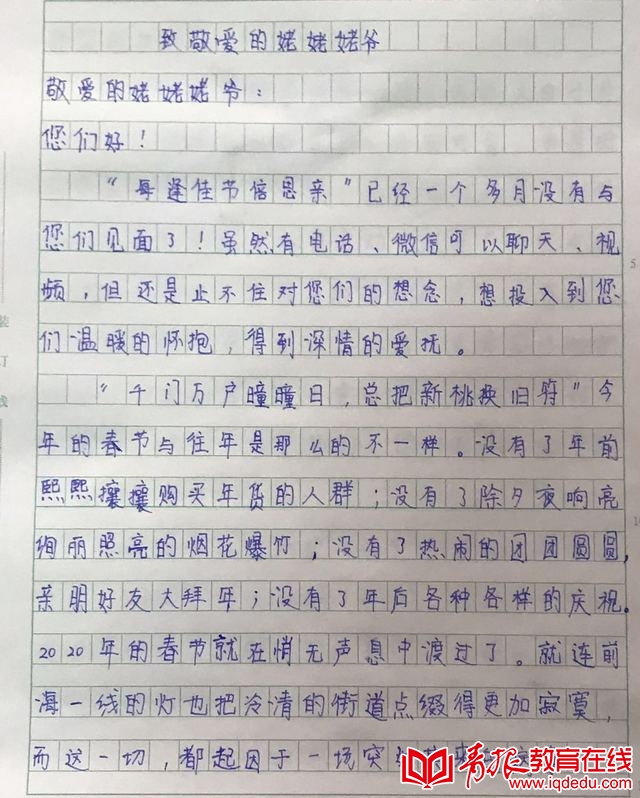 致敬爱的姥姥姥爷
敬爱的姥姥姥爷：
您们好！
“每逢佳节倍思亲”已经一个多月没有与
您们见面了！虽然有电话、微信可以聊天、视
频，但还是止不住对您们的想念，想投入到您
们温暖的怀抱，得到深情的爱抚。
“千门万户曈曈日，总把新桃换旧符”今
年的春节与往年是那么的不一样。没有了年前
熙熙攘攘购买年货的人群；没有了除夕夜响亮
绚丽照亮的烟花爆竹；没有了热闹的团团圆圆，
亲朋好友大拜年；没有了年后各种各样的庆祝。
2020年的春节就在悄无声息中渡过了。就连前
海一线的灯也把冷清的街道点缀得更加寂寞，
而这一切，都起因于一场突
青报教育在线
www.iqdedu.com
装
订
线
5